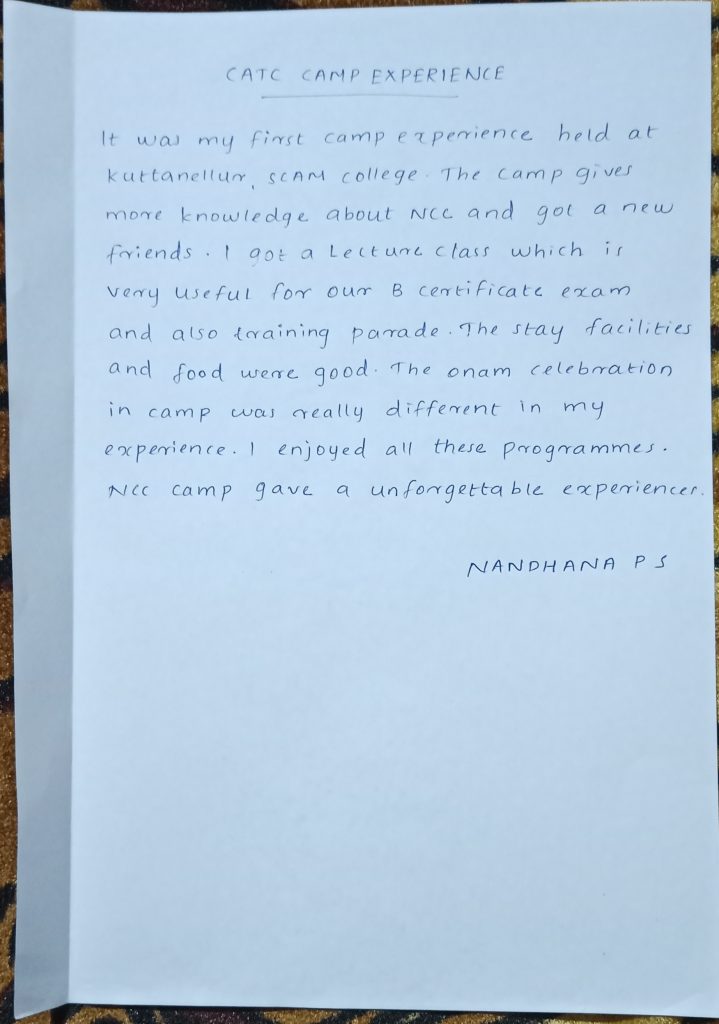 CATC CAMP EXPERIENCE
It was my first camp experience held at
kuttanellur, SCAM college. The camp gives
more knowledge about NCC and got a new
friends. I got a Lecture class which is
very useful for our B certificate exam
and also training parade. The stay facilities
and food were good. The onam celebration
in camp was really different in my
experience. I enjoyed all these programmes.
NCC camp gave a unforgettable experiences.
NANDHANA P S